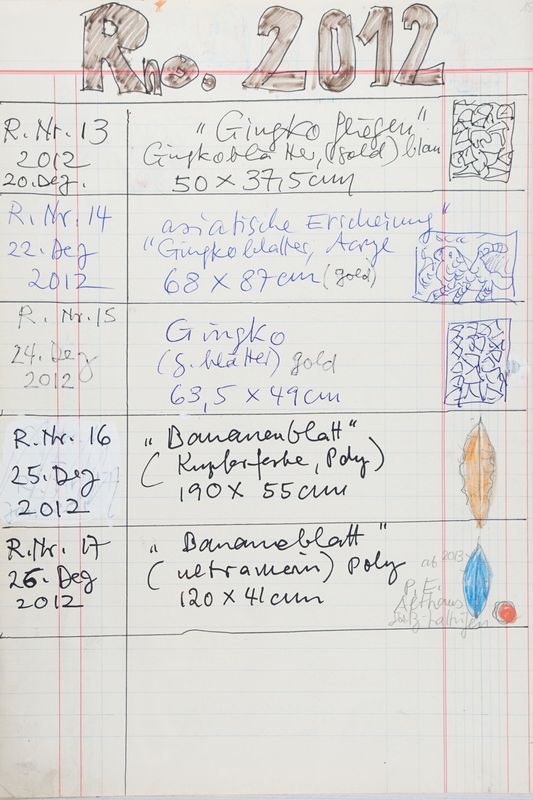 Rno. 2012
R. Nr. 13
2012
20. Dez.
"Gingko fliegen"
Gingkoblätter, (gold) blau
50 x 37,5 cm
R. Nr. 14
22. Dez
2012
asiatische Erscheinung"
"Gingkoblätter,
68 x 87 cm (gold)
R. Nr. 15
24. Dez
2012
Gingko
(G. blätter) gold
63,5 x 49 cm
R. Nr. 16
25. Dez
2012
"Bananenblatt"
(Kupferfarbe, Poly)
190 x 55 cm
R. Nr. 17
26. Dez
2012
"Bananeblatt"
(ultramarin) Poly
120 x 41 cm
ab 2013
P. E.
Althaus